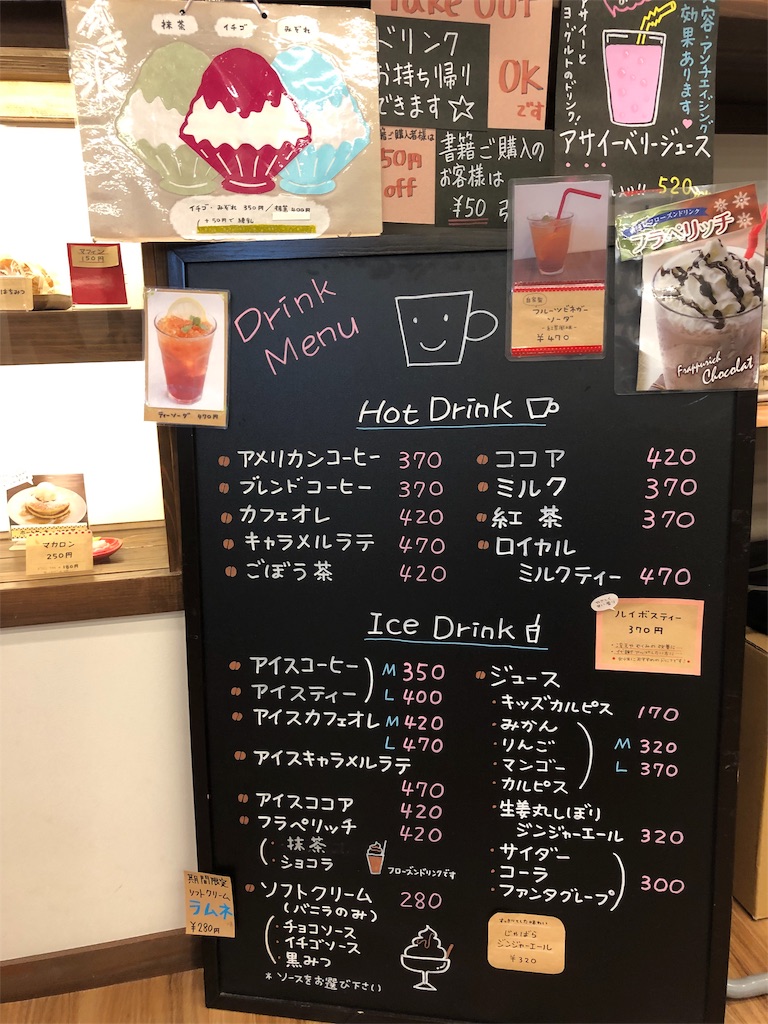 抹茶
イチゴ
みぞれ
イチゴ・みぞれ 350円/抹茶 400円
+50円で練乳
Take Out
ドリンク
お持ち帰り
できます☆
OK
です
書籍ご購入の
お客様は
¥50 引
籍ご購入者様は
50円
off
アサイーと
ヨーグルトのドリンク!
美容・アンチエイジング
効果あります♥
アサイーベリージュース
520
マフィン
150円
はちみつ
マカロン
250円
ティーソーダ 470円
自家製
フルーツビネガー
ソーダ
¥470
フローズンドリンク
フラペリッチ
Frappurich
Chocolat
Drink
Menu
Hot Drink
アメリカンコーヒー 370
ブレンドコーヒー 370
カフェオレ 420
キャラメルラテ 470
ごぼう茶 420
ココア 420
ミルク 370
紅茶 370
ロイヤル
ミルクティー 470
ルイボスティー
370円
Ice Drink
アイスコーヒー M 350
アイスティー L 400
アイスカフェオレ M 420
L 470
アイスキャラメルラテ
470
アイスココア 420
フラペリッチ 420
・抹茶
・ショコラ
フローズンドリンクです
ソフトクリーム 280
(バニラのみ)
・チョコソース
・イチゴソース
・黒みつ
*ソースをお選び下さい
ジュース
・キッズカルピス 170
・みかん
・りんご M 320
・マンゴー L 370
・カルピス
・生姜丸しぼり
ジンジャーエール 320
・サイダー
・コーラ 300
・ファンタグレープ
期間限定
ソフトクリーム
ラムネ
¥280円
じゃばら
ジンジャーエール
¥320